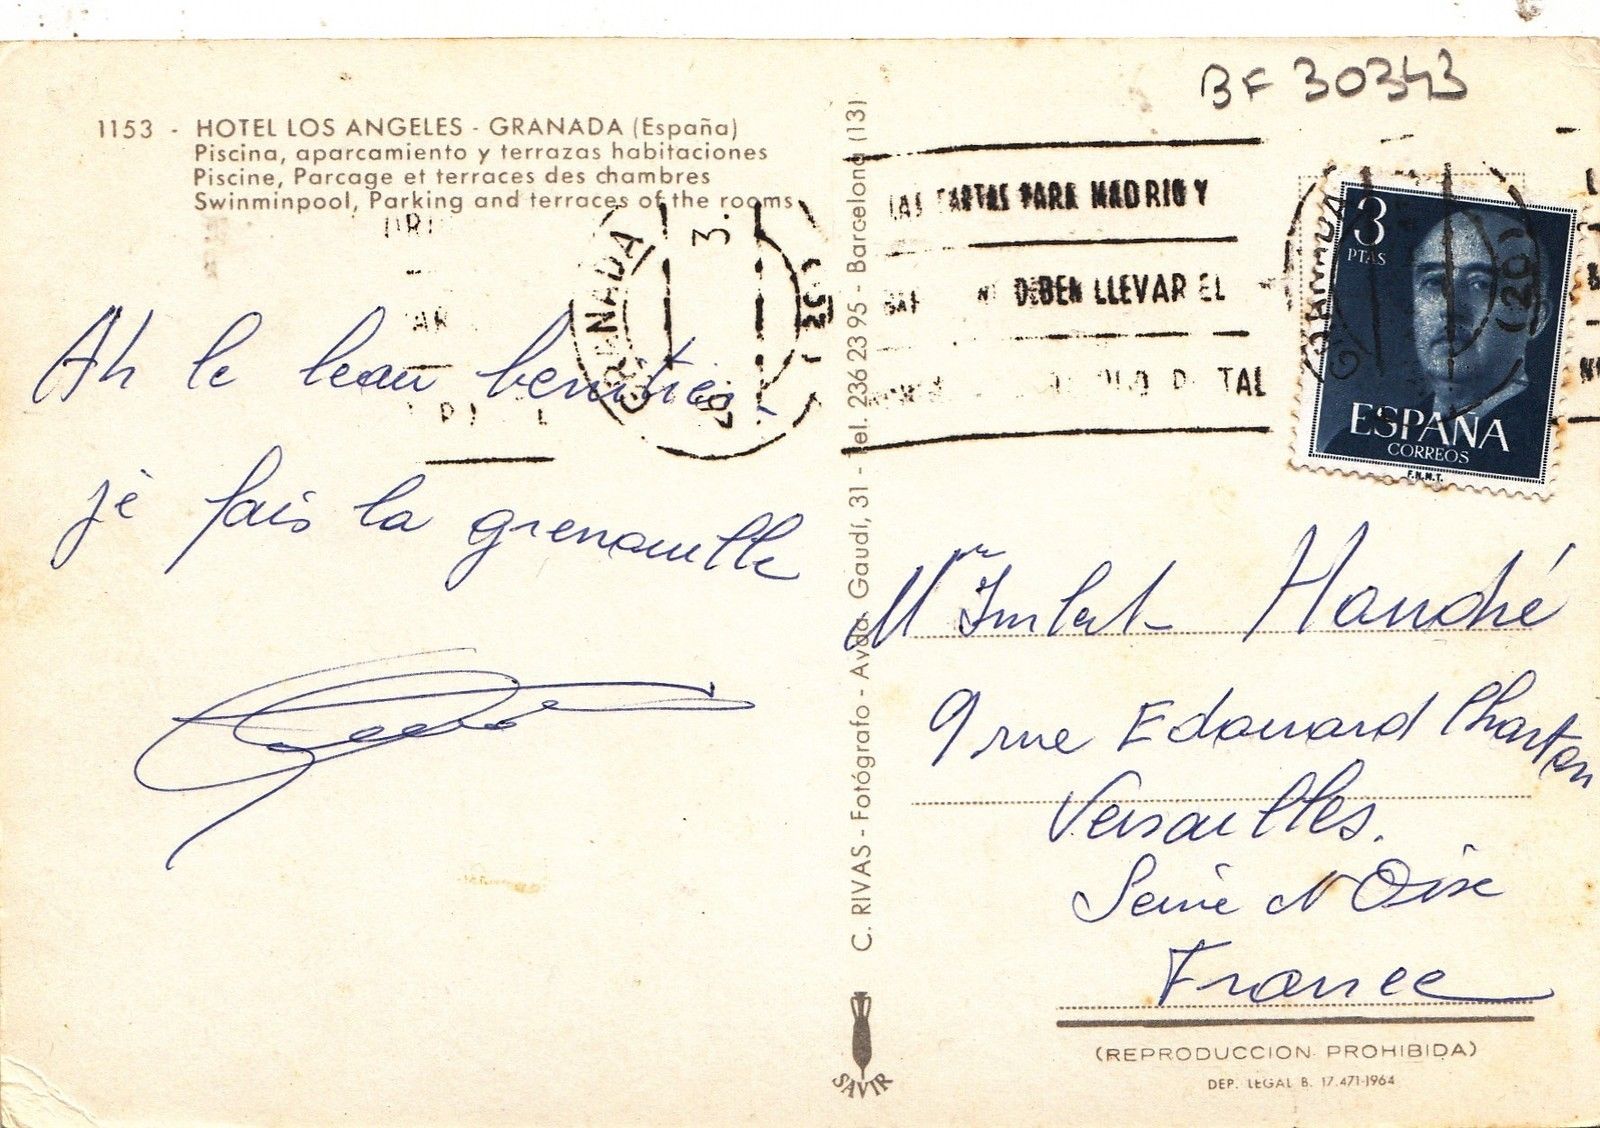 BF 30343
1153 - HOTEL LOS ANGELES - GRANADA (España)
Piscina, aparcamiento y terrazas habitaciones
Piscine, Parcage et terraces des chambres
Swinminpool, Parking and terraces of the rooms
GRANADA
3.
(20)
LAS CARTAS PARA MADRID Y
DEBEN LLEVAR EL
3
PTAS
ESPAÑA
CORREOS
F.N.M.T.
GRANADA
(20)
Ah le beau benitier
je fais la grenouille
C. RIVAS - Fotógrafo - Avda. Gaudí, 31 - Tel. 236 23 95 - Barcelona (13)
SAVIR
Mr
9 rue Edouard Charton
Versailles.
Seine N Oise
France
(REPRODUCCION PROHIBIDA)
DEP. LEGAL B. 17.471-1964